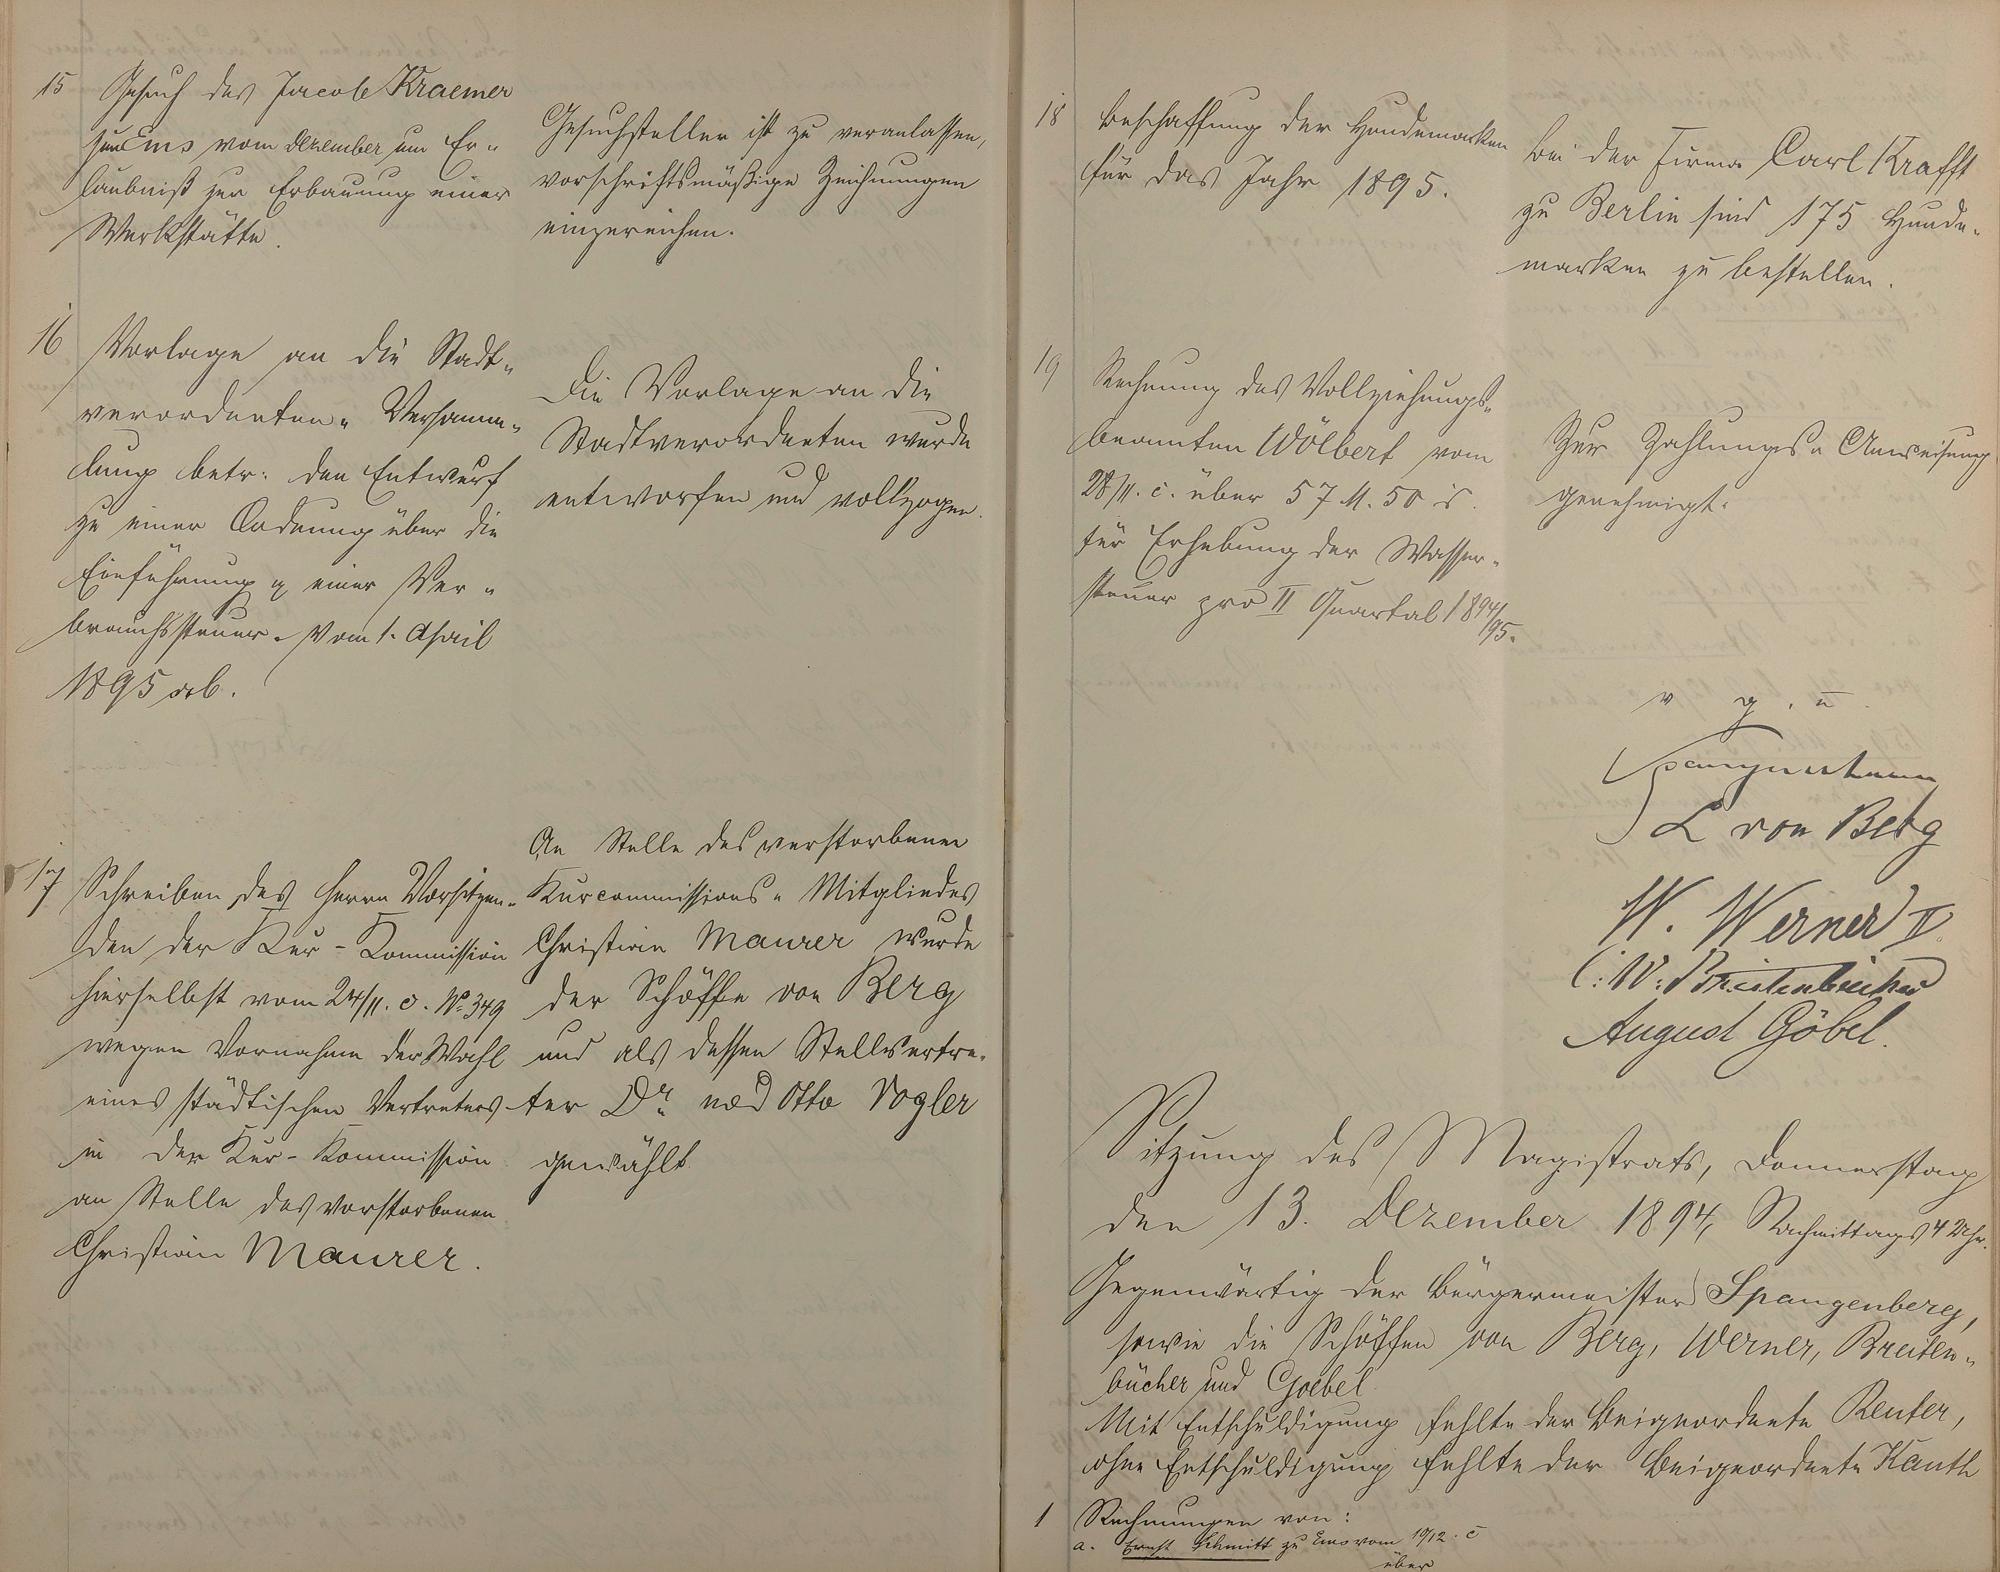 15 Gesuch des Jacob Kraemer
zu Ems vom Dezember um Er-
laubniß zur Erbauung einer
Werkstätte.
Gesuchsteller ist zu veranlassen,
vorschriftsmäßige Zeichnungen
einzureichen.
16 Vorlage an die Stadt-
verordneten-Versamm-
lung betr: den Entwurf
zu einer Ordnung über die
Einführung einer Ver-
brauchssteuer vom 1. April
1895 ab.
Die Vorlage an die
Stadtverordneten wurde
entworfen und vollzogen.
17 Schreiben des Herrn Vorsitzen-
den der Kur-Kommission
hierselbst vom 24/11. c. No. 349
wegen Vornahme der Wahl
eines städtischen Vertreters
in der Kur-Kommission
an Stelle des verstorbenen
Christian Maurer.
An Stelle des verstorbenen
Kurcommissions-Mitgliedes
Christian Maurer wurde
der Schöffe von Berg
und als dessen Stellvertre-
ter Dr. med Otto Vogler
gewählt.
18 Beschaffung der Hundemarken
für das Jahr 1895.
Bei der Firma Carl Krafft
zu Berlin sind 175 Hunde-
marken zu bestellen.
19 Rechnung des Vollziehungs-
beamten Wölbert vom
28/11. c. über 57 M. 50 
für Erhebung der Wasser-
steuer pro II Quartal 1894/95.
Zur Zahlungs-Anweisung
genehmigt.
v. g. u.
Spangenberg
L von Berg
W. Werner II.
C: W: Breitenbücher
August Göbel.
Sitzung des Magistrats, Donnerstag
den 13. Dezember 1894, Nachmittags 4 Uhr.
Gegenwärtig der Bürgermeister Spangenberg,
sowie die Schöffen von Berg, Werner, Breiten-
bücher und Goebel.
Mit Entschuldigung fehlte der Beigeordnete Reuter,
ohne Entschuldigung fehlte der Beigeordnete Kauth
1 Rechnungen von:
a. Ernst Schmitt zu Ems vom 10/12. c
über